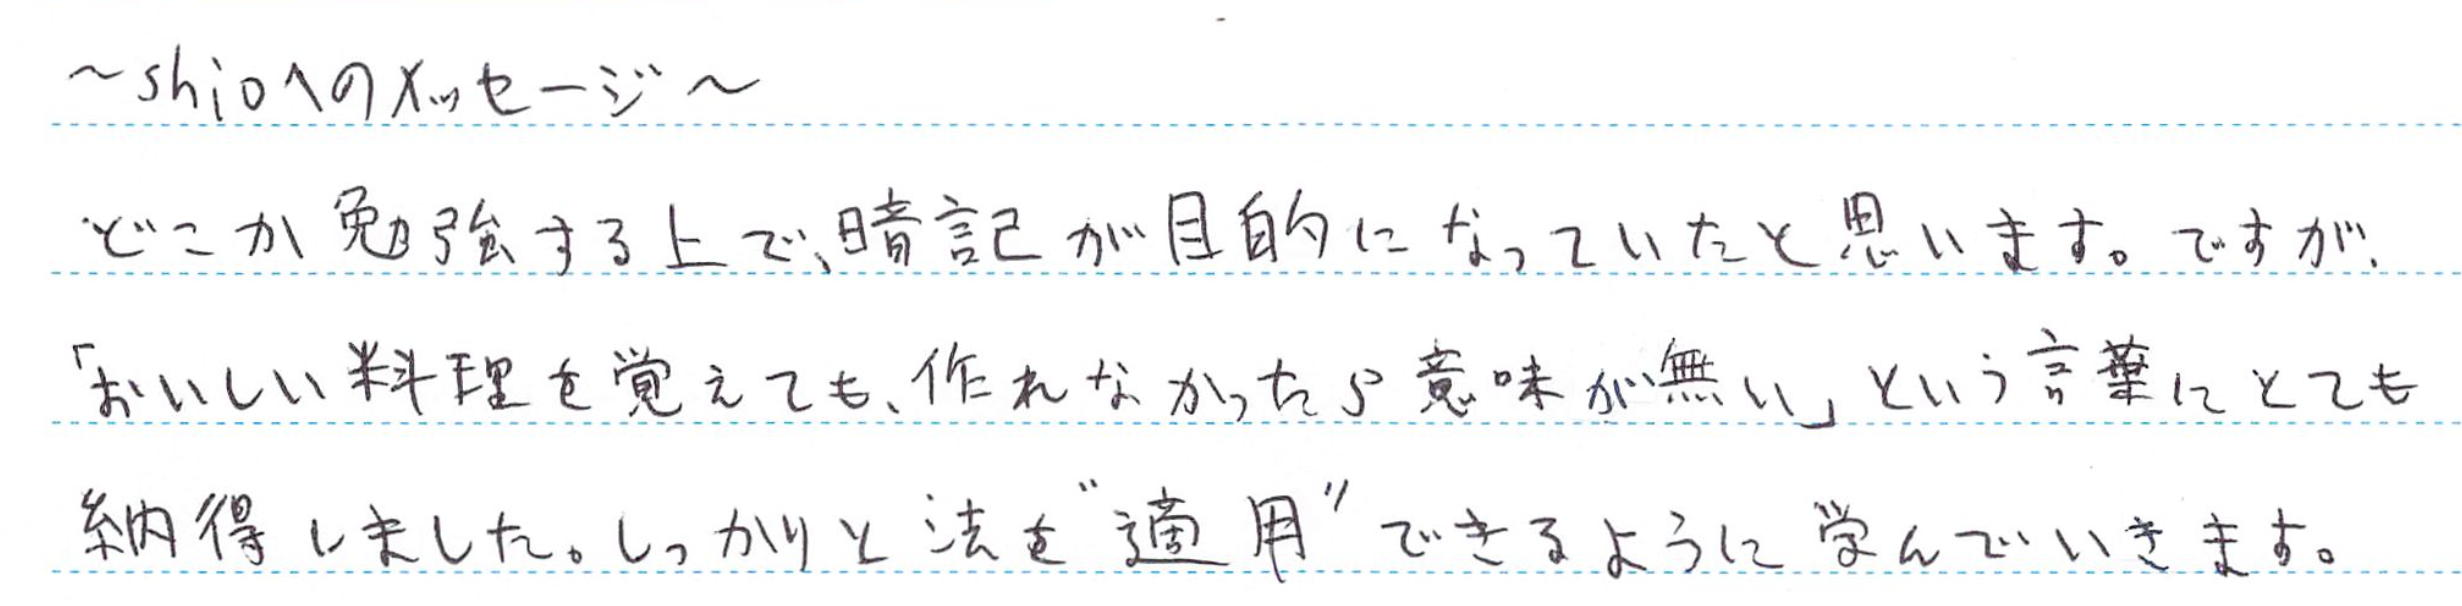 ～shioへのメッセージ～
どこか勉強する上で、暗記が目的になっていたと思います。ですが、
「おいしい料理を覚えても、作れなかったら意味が無い」という言葉にとても
納得しました。しっかりと法を“適用”できるように学んでいきます。